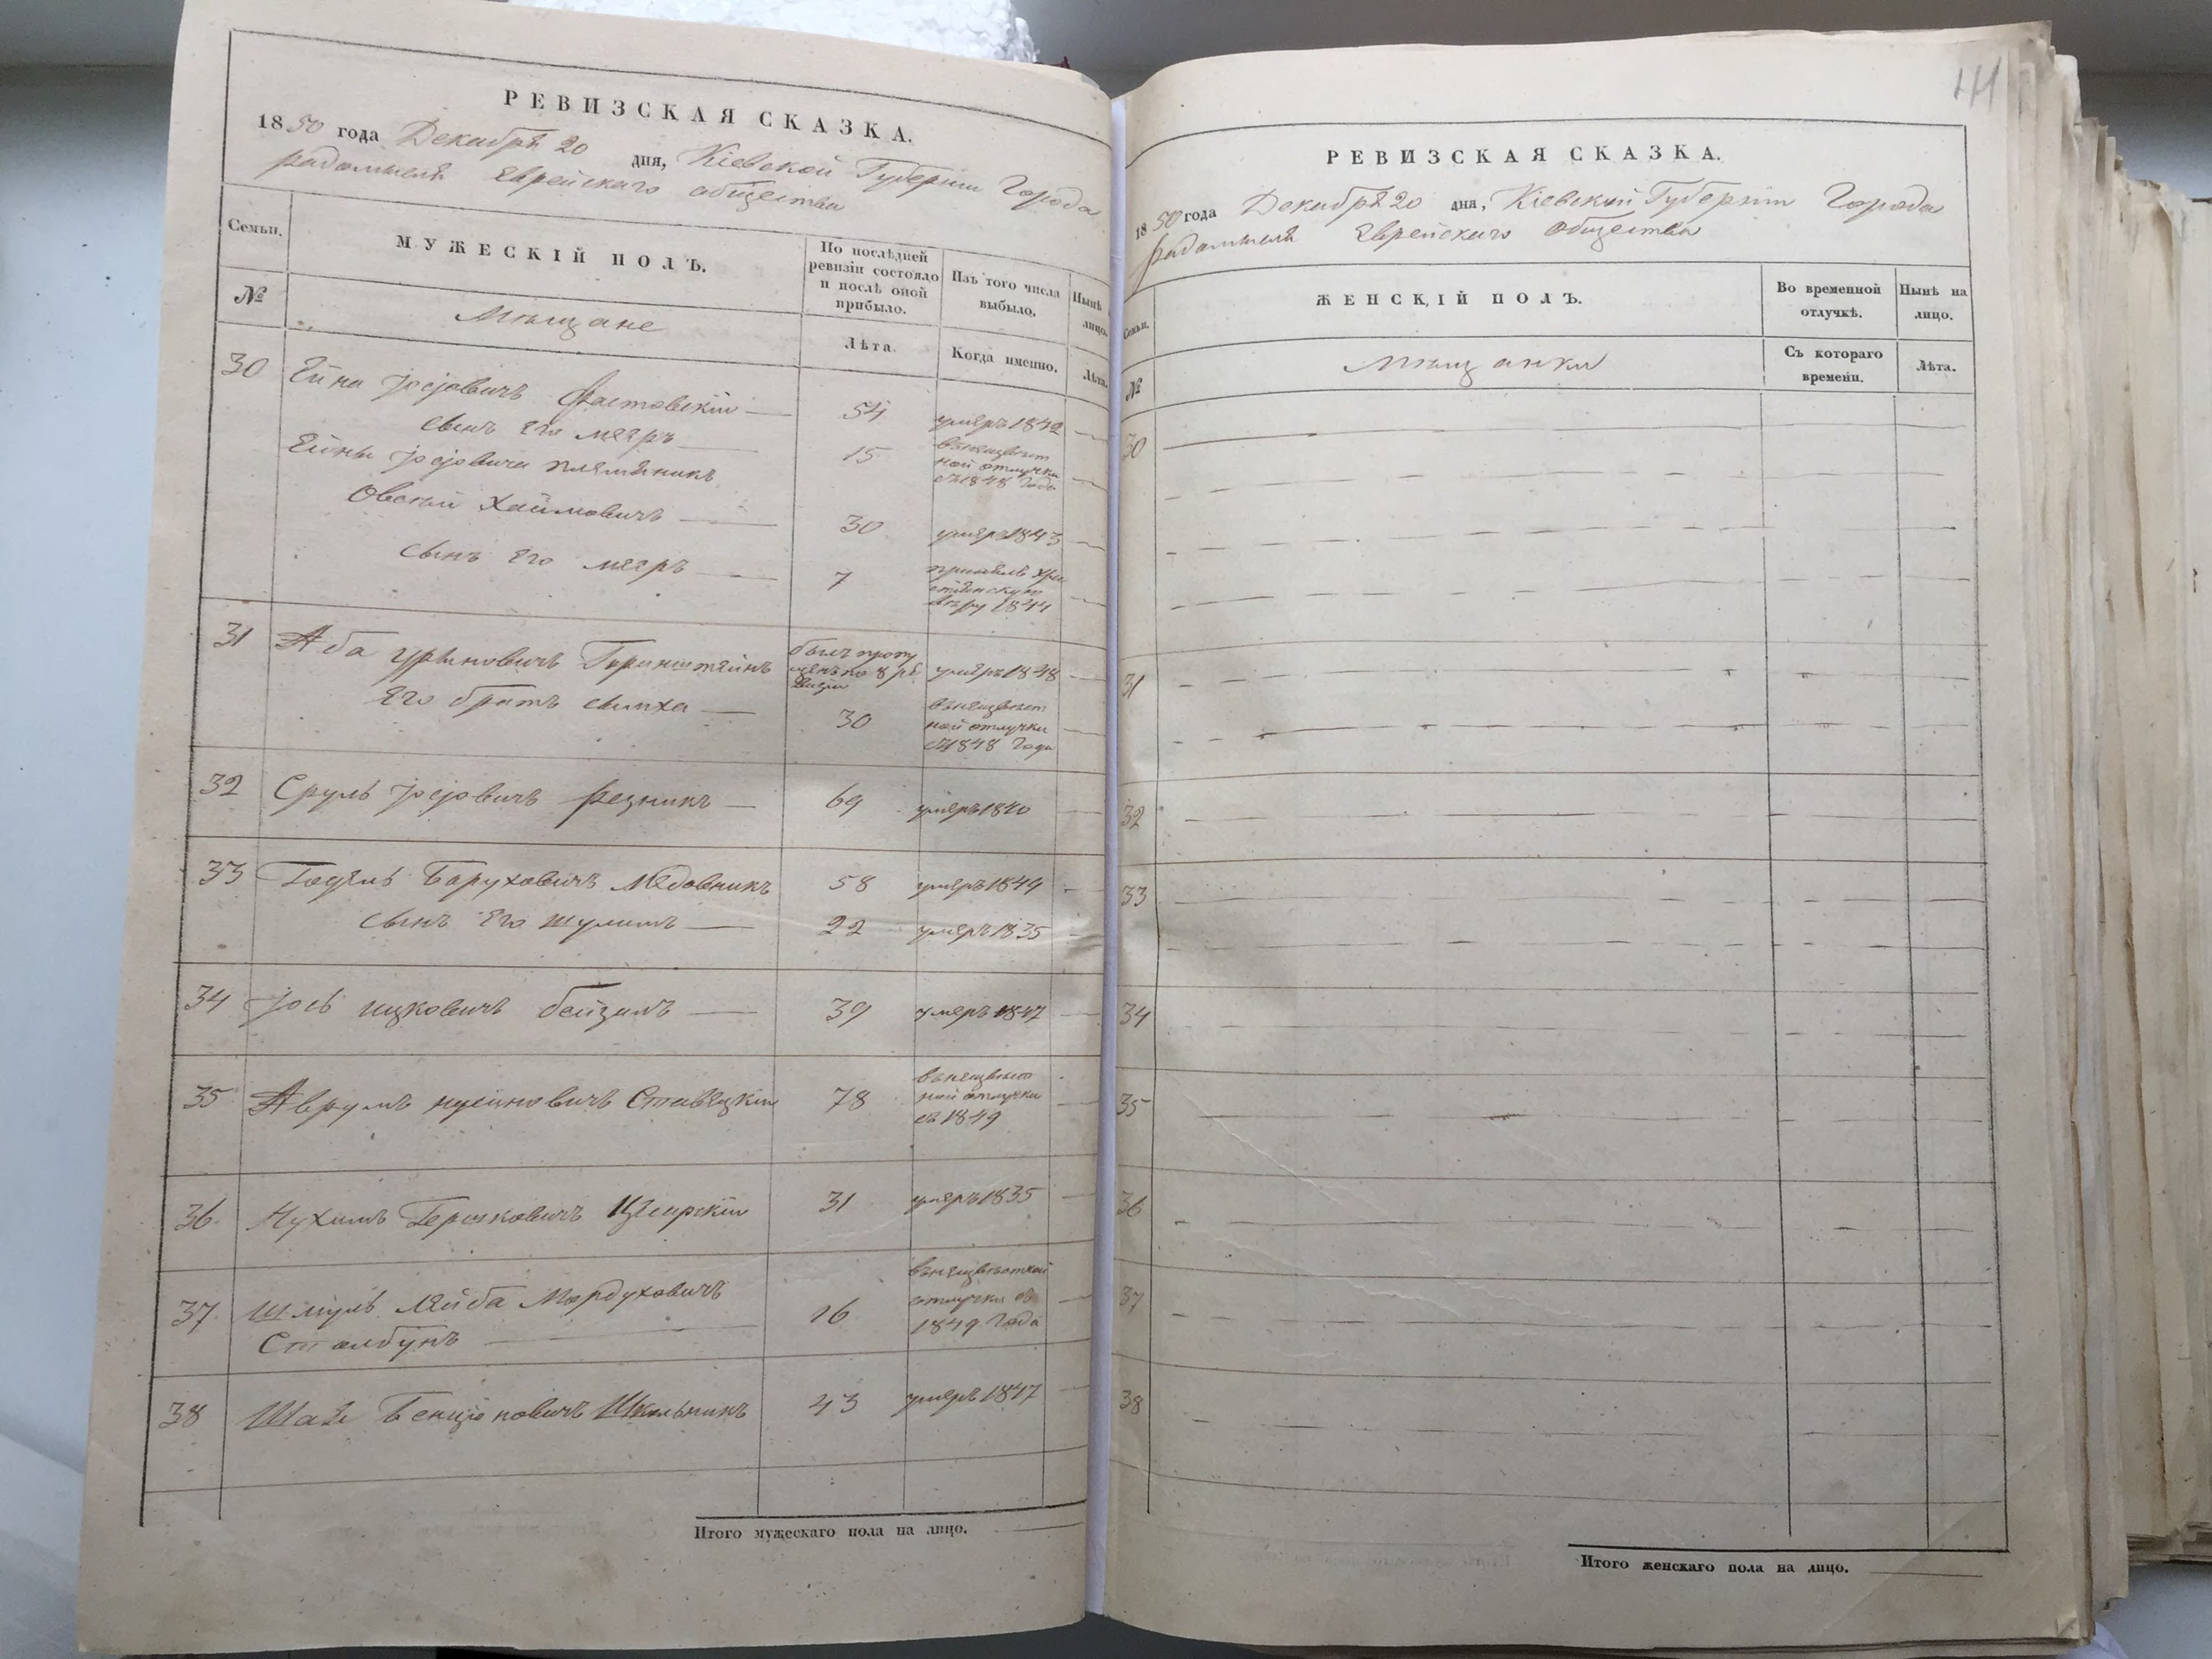 РЕВИЗСКАЯ СКАЗКА.
1850 года Декабря 20 дня, Кіевской Губерніи Города
Радомысля Еврейскаго общества
Семьи.
МУЖЕСКІЙ ПОЛЪ.
По послѣдней ревизіи состояло и послѣ оной прибыло.
Изъ того числа выбыло.
Нынѣ лицо.
№
Мѣщане
Лѣта.
Когда именно.
Лѣта.
30 Ейна Іосіовичъ Фастовскій — 54 умеръ 1842 —
сынъ Его мееръ — 15 въ неизвѣст
ной отлучки
съ 1848 Года —
Ейны Іосіовича племянникъ
Овсѣй Хаймовичъ — 30 умеръ 1843 —
сынъ Его мееръ — 7 принялъ Хри
стіянскую
вѣру 1844 —
31 Аба Гринштейнъ былъ пропу
щенъ по 8 ре
визіи умеръ 1848 —
Его братъ симха — 30 въ неизвѣст
ной отлучки
съ 1848 Года —
32 Сруль Іосіовичъ Резникъ — 69 умеръ 1840 —
33 Годель Баруховичъ Медовникъ 58 умеръ 1849 -
сынъ Его шулимъ — 22 умеръ 1835
34 Іось ицковичъ — 39 умеръ 1847 —
35 Аврумъ нусиновичъ Ставецкій 78 въ неизвѣст
ной отлучки
съ 1849 —
36 Нухимъ Гершковичъ 31 умеръ 1835 —
37 Шмуль Лейба Мордуховичъ
Столбунъ — 16 въ неизвѣстной
отлучки съ
1849 Года —
38 Шая Бенціоновичъ Школьникъ 43 умеръ 1847 —
Итого мужескаго пола на лицо. —
РЕВИЗСКАЯ СКАЗКА.
1850 года Декабря 20 дня, Кіевской Губерніи Города
Радомысля Еврейскаго Общества
Семьи.
ЖЕНСКІЙ ПОЛЪ.
Во временной отлучкѣ.
Нынѣ на лицо.
№
Мѣщанки
Съ котораго времени.
Лѣта.
30
31
32
33
34
35
36
37
38
Итого женскаго пола на лицо. —